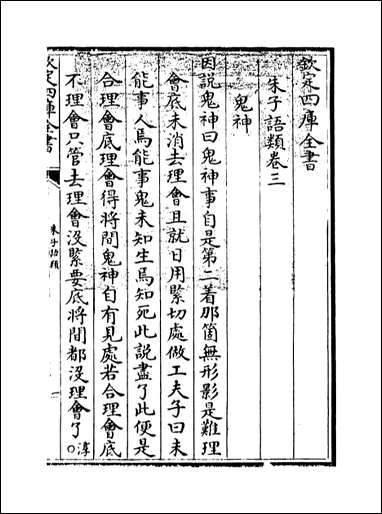 欽定四庫全書
朱子語類卷三
鬼神
因説鬼神曰鬼神事自是第二着那箇無形影是難理
會底未消去理會且就日用緊切處做工夫子曰未
能事人焉能事鬼未知生焉知死此説盡了此便是
合理會底理會得將間鬼神自有見處若合理會底
不理會只管去理會没緊要底將間都没理會了淳〇
欽定四庫全書
朱子語類
一